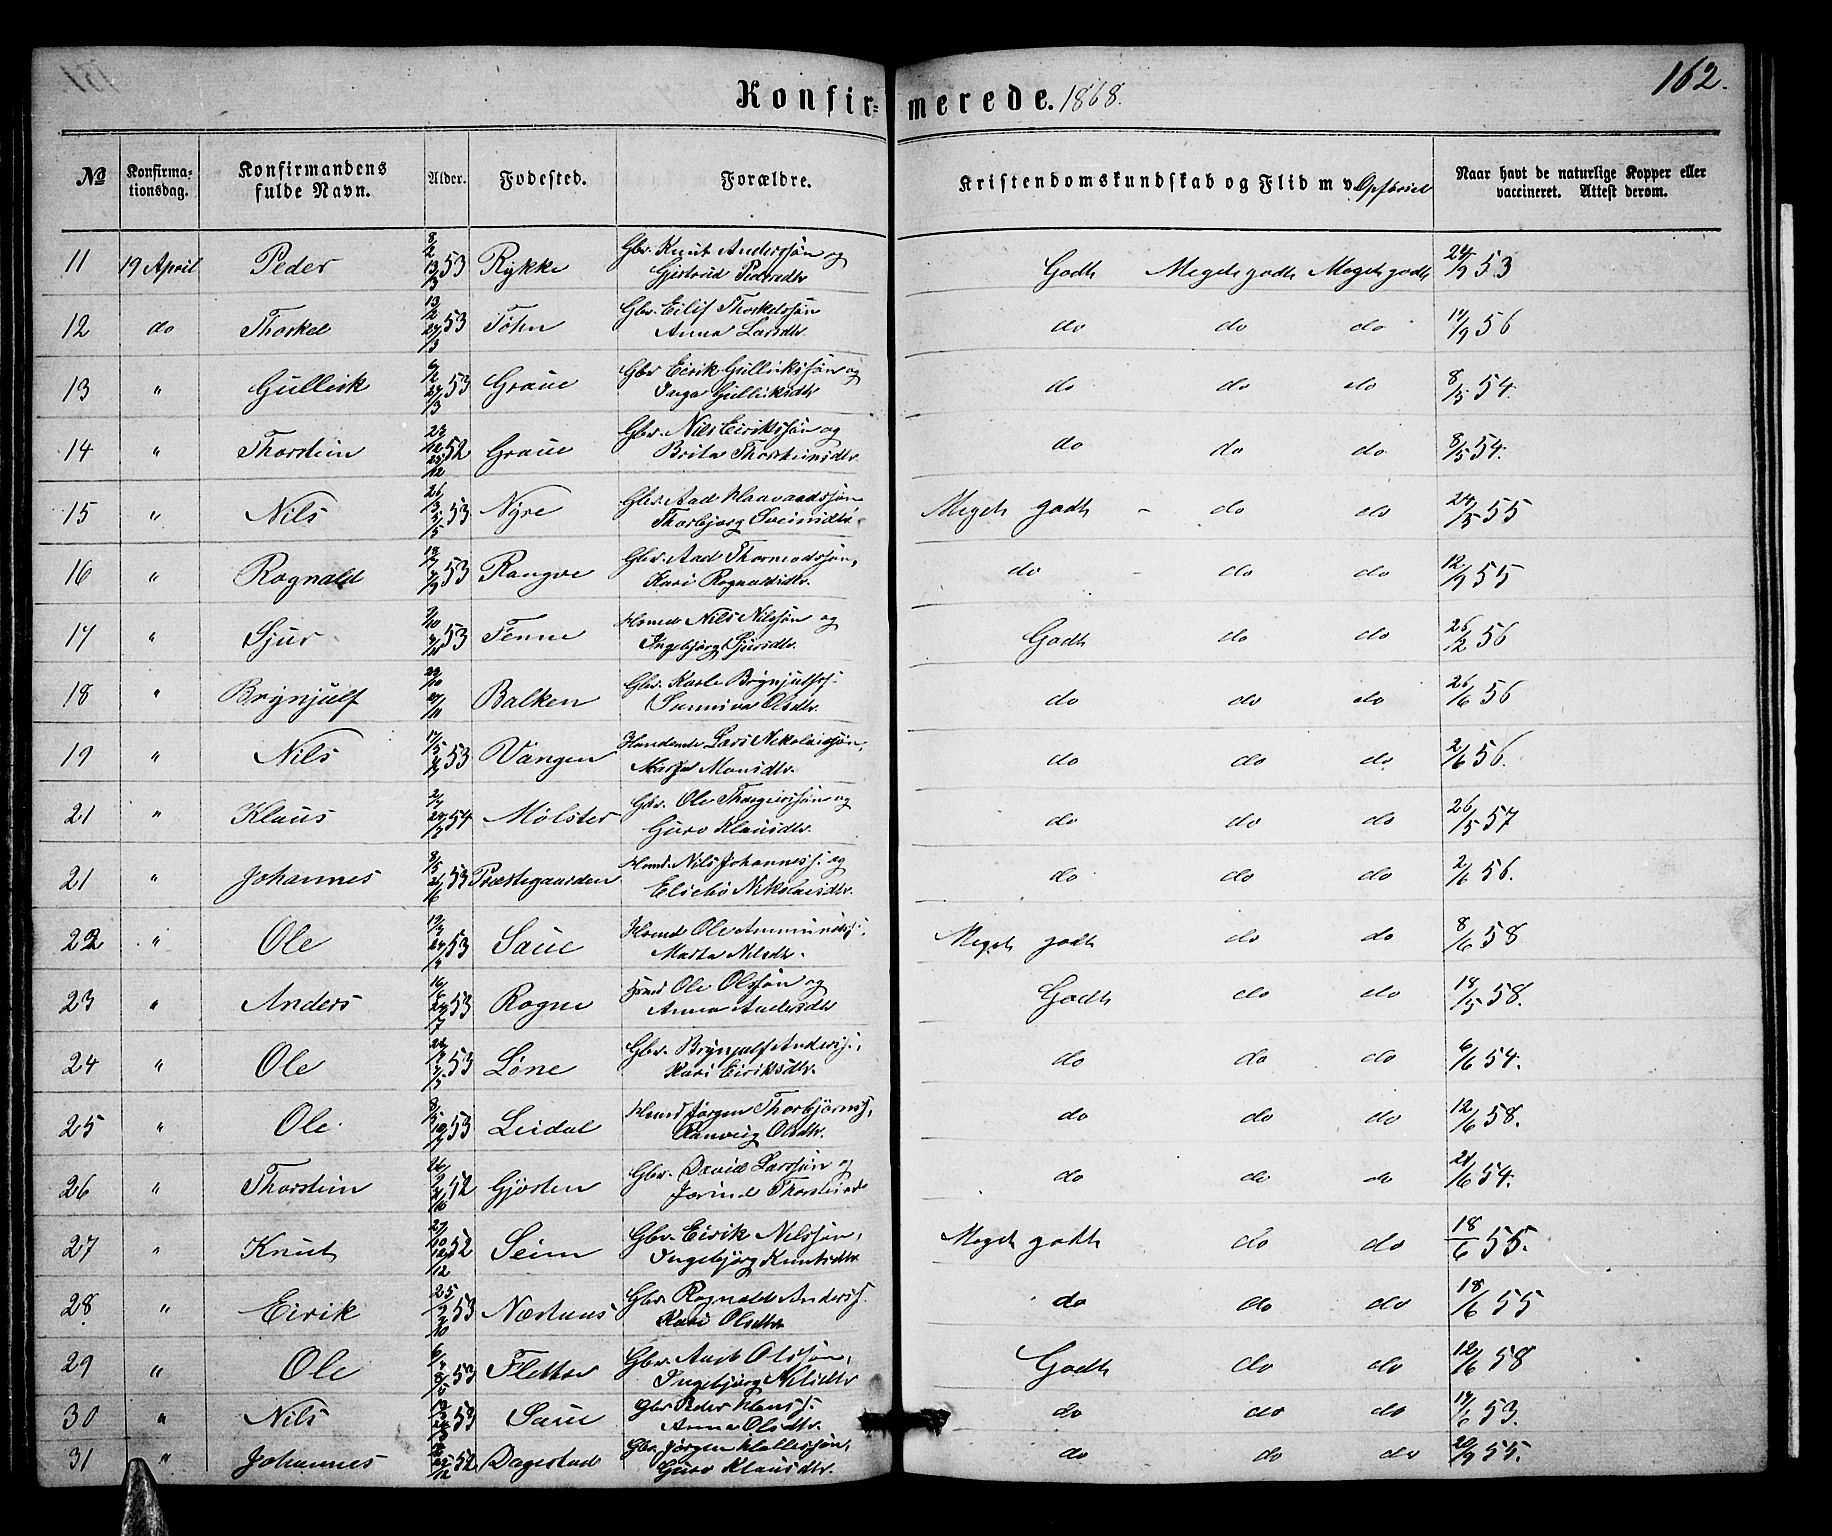 162.
Konfir= merede. 1868.
No Konfirma=tionsdag. Konfirmandens fulde Navn. Alder. Fødested. Forældre. Kristendomskundskab og Flid m v Opførsel Naar havt de naturlige Kopper eller vaccineret. Attest derom.
11 19 April Peder 8/2 13/3 53 Rykke Gbr. Knut Anderssøn og Gjertrud Pedersdtr Godt Meget godt Meget godt 24/9 53
12 do Thorkel 13/2 53 Tøhn Gbr. Eilif Thorkelssøn Anna Larsdtr do do do 14/9 56
13 " Gullik 53 Graue Gbr Eirik Gullikssøn og Inga Gulliksdtr do do do 8/5 54.
14 " Thorstein 52 Graue Gbr. Nils Eirikssøn og Brita Thorsteinsdtr do do do 8/5 54.
15 " Nils 26/3 5/5 53 Nyre Gbr. Aad Klaavaadssøn Thorbjørg Sveinsdtr. Meget godt - do do 24/5 55
16 " Rognald 53 Rongve Gbr. Aad Thormodssøn, Kari Rognaldsdtr. do - do do 12/9 55
17 " Sjur 53 Tenne Hsmd Nils Nilssøn og Ingebjørg Sjursdtr. Godt do do 26/12 56
18 " Brynjulf Balken Gbr. Kaste Brynjulfs. Sunniva Olsdtr. do do do 26/6 56
19 " Nils 53 Vangen Handemd Lars Nikolaissøn, Marja Monsdtr. do do do 2/6 56.
21 " Klaus 54 Mølster Gbr. Ole Thorgeirssøn og Guro Klausdtr. do do do 26/5 57
21 " Johannes 8/5 53 Præstegaarden Hsmd. Nils Johanness. og Elisebo Nikolaisdtr. do do do 2/6 56.
22 " Ole 53 Saue Hsmd Ole Ammunds. Marta Nilsdtr. Meget godt do do 8/6 58
23 " Anders 53 Rogne Hsmd Ole Olssøn og Anna Andersdtr Godt do do 18/5 58.
24 " Ole 53 Løne Gbr. Brynjulf Anderss., Kari Eiriksdtr. do do do 6/6 54.
25 " Ole. 53 Leidal Hsmd Jørgen Thorbjørns., Ranveig Olsdtr. do do do 12/6 58.
26 " Thorstein 52 Gjosten Gbr. David Larssøn og Jorind Thorsteinsd do do do 21/6 54.
27 " Knut 52 Seim Gbr. Eirik Nilssøn, Ingebjørg Knutsdtr Meget godt do do 18/6 55.
28. " Eirik 25/9 53 Næstaas Gbr. Rognald Anderss. Kari Olsdtr do do do 18/6 55
29 " Ole 53 Flettre Gbr. Aad Olssøn, Ingebjørg Nilsdtr Godt do do 12/6 58
30 " Nils 53 Saue Gbr Peder Klauss. Anna Olsdtr. do do do 14/6 53.
31 " Johannes 52 Dagestad Gbr. Jørgen Hallessøn, Guro Klausdtr. do do do 20/9 55.